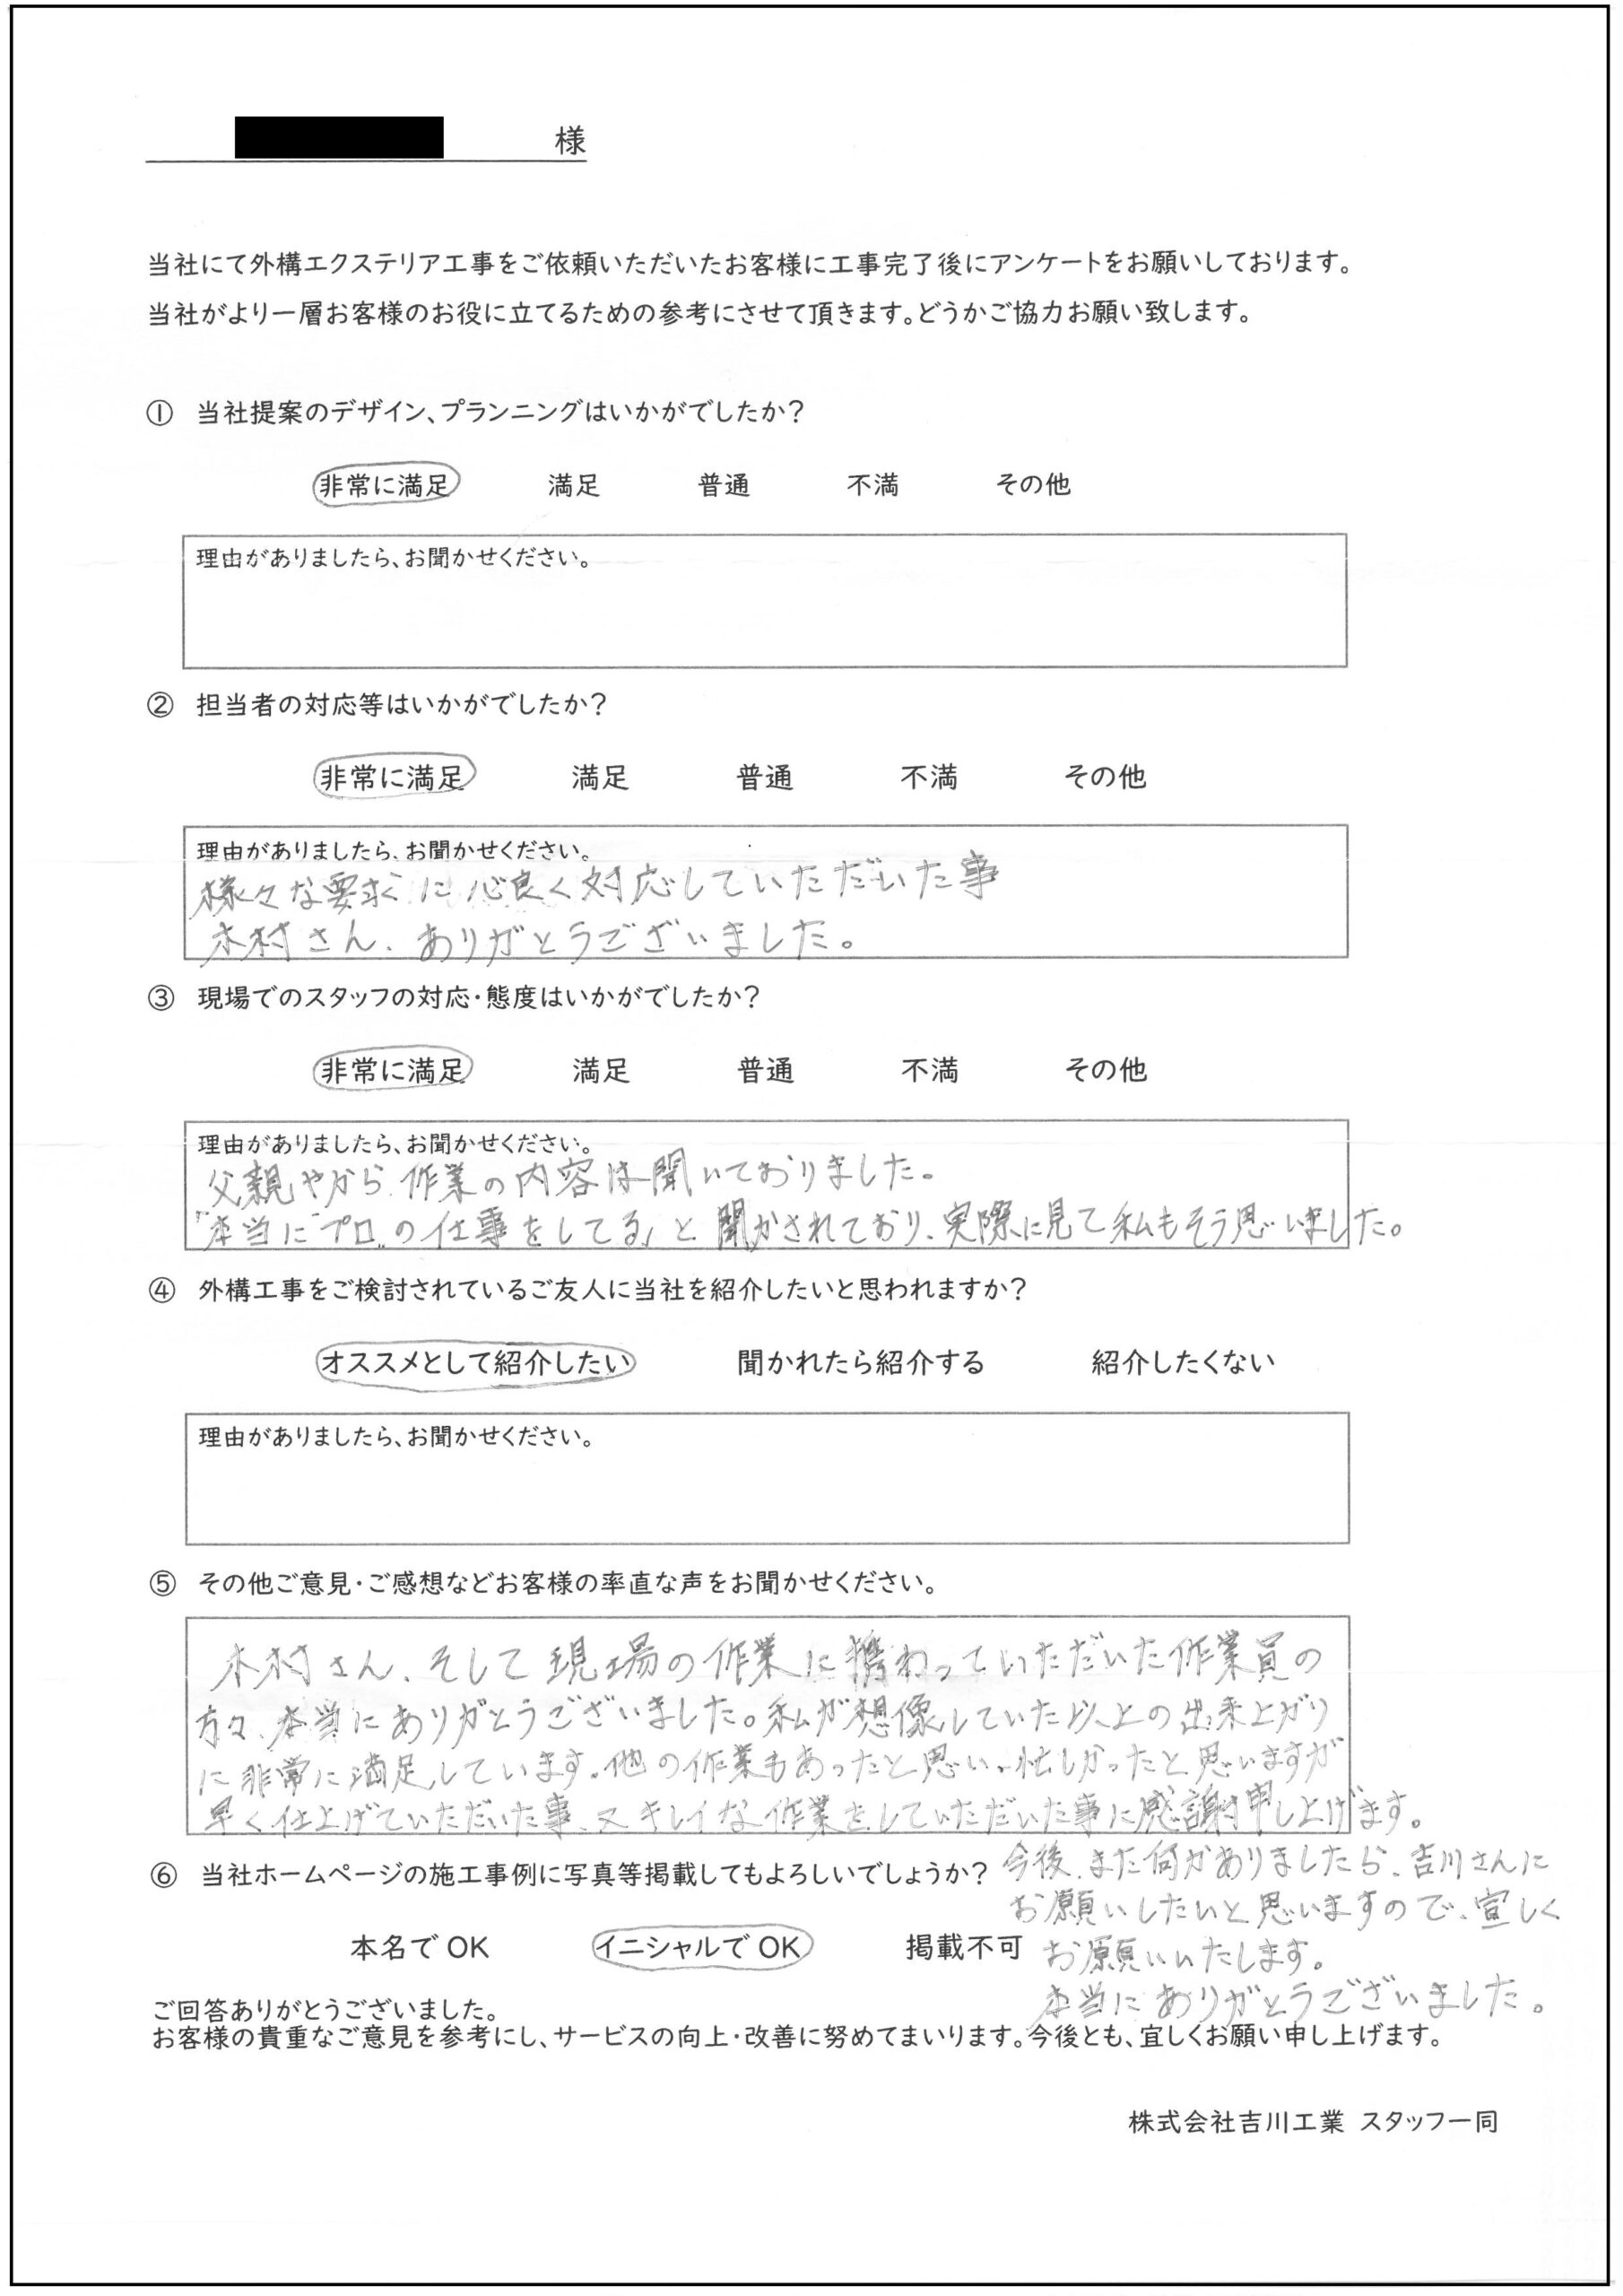 様
当社にて外構エクステリア工事をご依頼いただいたお客様に工事完了後にアンケートをお願いしております。
当社がより一層お客様のお役に立てるための参考にさせて頂きます。どうかご協力お願い致します。
① 当社提案のデザイン、プランニングはいかがでしたか?
非常に満足 満足 普通 不満 その他
理由がありましたら、お聞かせください。
② 担当者の対応等はいかがでしたか?
非常に満足 満足 普通 不満 その他
理由がありましたら、お聞かせください。
様々な要求に心良く対応していただいた事
木村さん、ありがとうございました。
③ 現場でのスタッフの対応・態度はいかがでしたか?
非常に満足 満足 普通 不満 その他
理由がありましたら、お聞かせください。
父親から、作業の内容は聞いておりました。
「本当に"プロ"の仕事をしてる」と聞かされており、実際に見て私もそう思いました。
④ 外構工事をご検討されているご友人に当社を紹介したいと思われますか?
オススメとして紹介したい 聞かれたら紹介する 紹介したくない
理由がありましたら、お聞かせください。
⑤ その他ご意見・ご感想などお客様の率直な声をお聞かせください。
木村さん、そして現場の作業に携わっていただいた作業員の
方々、本当にありがとうございました。私が想像していた以上の出来上がり
に非常に満足しています。他の作業もあったと思い、忙しかったと思いますが
早く仕上げていただいた事、又キレイな作業をしていただいた事に感謝申し上げます。
今後、また何かありましたら、吉川さんに
お願いしたいと思いますので、宜しく
お願いいたします。
本当にありがとうございました。
⑥ 当社ホームページの施工事例に写真等掲載してもよろしいでしょうか?
本名でOK イニシャルでOK 掲載不可
ご回答ありがとうございました。
お客様の貴重なご意見を参考にし、サービスの向上・改善に努めてまいります。今後とも、宜しくお願い申し上げます。
株式会社吉川工業 スタッフ一同